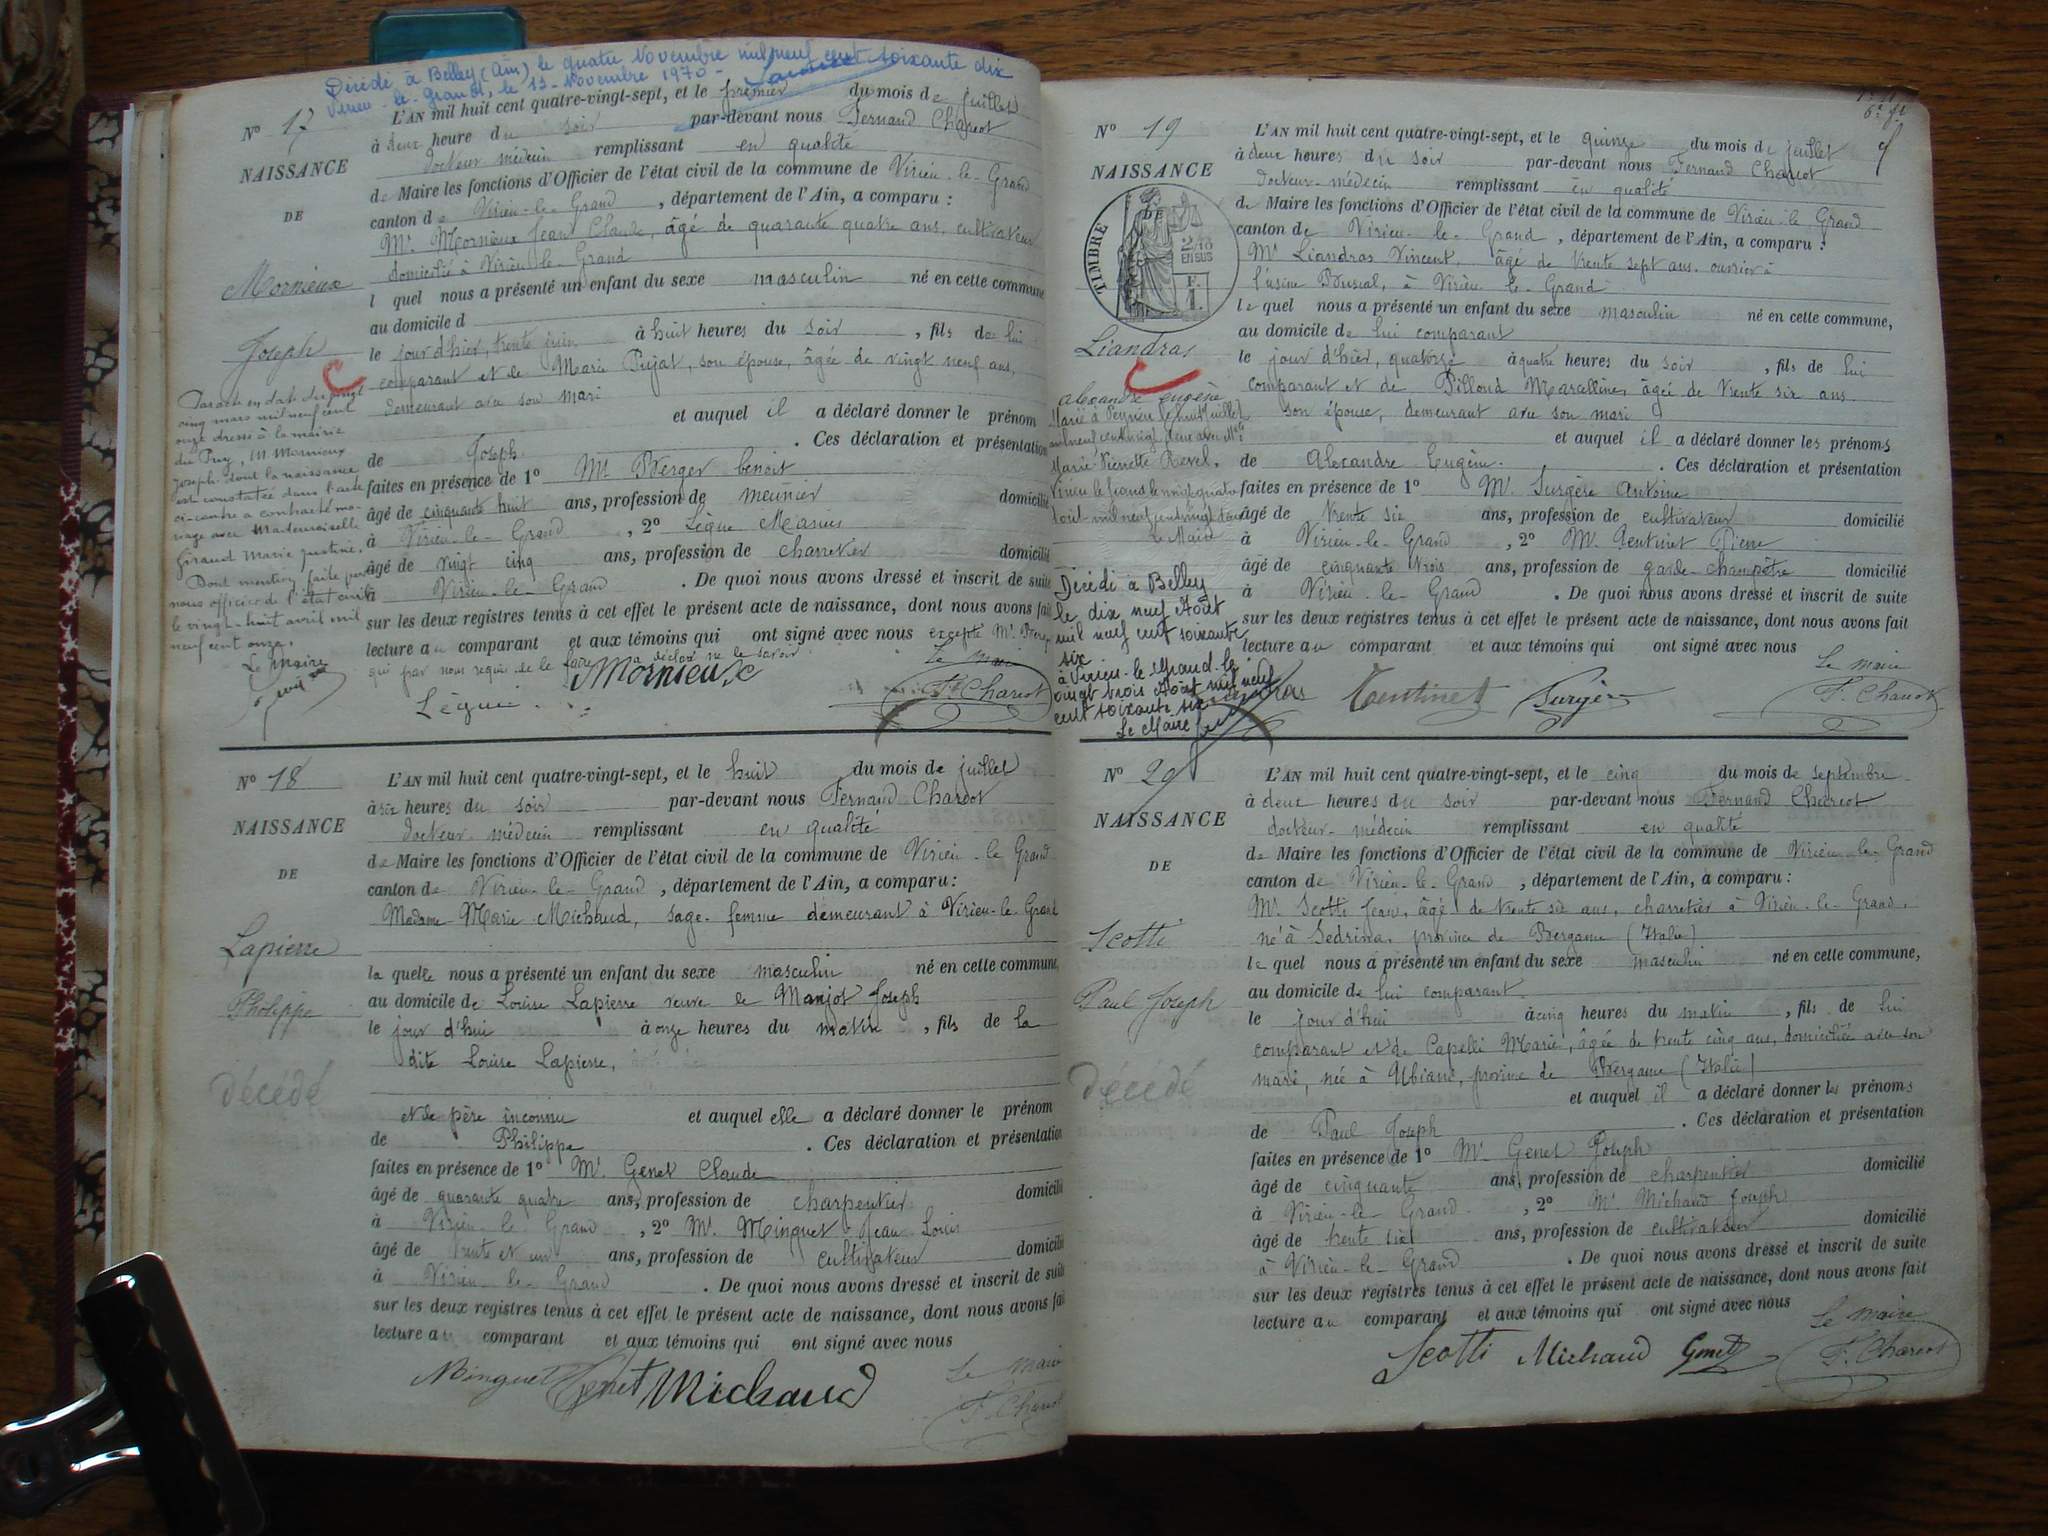 Décédé à Belley (Ain) le quatre Novembre mil neuf cent soixante dix
Virieu-le-Grand, le 12 Novembre 1970 -
N° 17
NAISSANCE
DE
Mornieux
Joseph
Par acte en date du vingt
cinq mars mil neuf cent
onze dressé à la mairie
du Puy, M. Mornieux
Joseph dont la naissance
est constatée dans l'acte
ci-contre a contracté ma-
riage avec Mademoiselle
Giraud Marie Justine.
Dont mention faite par
nous officier de l'état civil
le vingt-huit avril mil
neuf cent onze.
Le Maire
L'AN mil huit cent quatre-vingt-sept, et le premier du mois de juillet
à deux heure du soir par-devant nous Fernand Charcot
docteur médecin remplissant en qualité
de Maire les fonctions d'Officier de l'état civil de la commune de Virieu-le-Grand
canton de Virieu-le-Grand, département de l'Ain, a comparu :
Mr Mornieux Jean Claude, âgé de quarante quatre ans, cultivateur
domicilié à Virieu-le-Grand
lequel nous a présenté un enfant du sexe masculin né en cette commune
au domicile d
le jour d'hier, trente juin à huit heures du soir, fils de lui
comparant et de Marie Pujat, son épouse, âgée de vingt neuf ans,
demeurant avec son mari
et auquel il a déclaré donner le prénom
de Joseph. Ces déclaration et présentation
faites en présence de 1° Mr Berger benoit
âgé de cinquante huit ans, profession de meunier domicilié
à Virieu-le-Grand, 2° Lègue Marius
âgé de vingt cinq ans, profession de charretier domicilié
à Virieu-le-Grand. De quoi nous avons dressé et inscrit de suite
sur les deux registres tenus à cet effet le présent acte de naissance, dont nous avons fait
lecture au comparant et aux témoins qui ont signé avec nous excepté Mr Berger
qui par nous requis de le faire a déclaré ne le savoir
Le maire
Mornieux
F. Charcot
N° 18
NAISSANCE
DE
Lapierre
Philippe
Décédé
L'AN mil huit cent quatre-vingt-sept, et le huit du mois de juillet
à six heures du soir par-devant nous Fernand Charcot
docteur médecin remplissant en qualité
de Maire les fonctions d'Officier de l'état civil de la commune de Virieu-le-Grand
canton de Virieu-le-Grand, département de l'Ain, a comparu :
Madame Marie Michaud, sage-femme demeurant à Virieu-le-Grand
laquelle nous a présenté un enfant du sexe masculin né en cette commune,
au domicile de Louise Lapierre veuve de Manjot Joseph
le jour d'hui à onze heures du matin, fils de la
dite Louise Lapierre,
et de père inconnu et auquel elle a déclaré donner le prénom
de Philippe. Ces déclaration et présentation
faites en présence de 1° Mr Genet Claude
âgé de quarante quatre ans, profession de charpentier domicilié
à Virieu-le-Grand, 2° Mr Minguet Jean Louis
âgé de trente et un ans, profession de cultivateur domicilié
à Virieu-le-Grand. De quoi nous avons dressé et inscrit de suite
sur les deux registres tenus à cet effet le présent acte de naissance, dont nous avons fait
lecture au comparant et aux témoins qui ont signé avec nous
Le maire
Minguet Genet Michaud
F. Charcot
N° 19
NAISSANCE
DE
TIMBRE
2/10
EN SUS
F.
1.
Liandras
Alexandre Eugène
Marié à Peyrieu le huit juillet
mil neuf cent vingt deux avec Mlle
Marie Pierrette Revel.
Virieu le Grand le vingt quatre
Août mil neuf cent vingt deux
Le Maire
Décédé à Belley
le dix neuf Août
mil neuf cent soixante
six
à Virieu-le-Grand le
vingt trois Août mil neuf
cent soixante six
Le Maire
L'AN mil huit cent quatre-vingt-sept, et le quinze du mois de juillet
à deux heures du soir par-devant nous Fernand Charcot
docteur-médecin remplissant en qualité
de Maire les fonctions d'Officier de l'état civil de la commune de Virieu-le-Grand
canton de Virieu-le-Grand, département de l'Ain, a comparu :
Mr Liandras Vincent, âgé de trente sept ans, ouvrier à
l'usine à Virieu le Grand
lequel nous a présenté un enfant du sexe masculin né en cette commune,
au domicile de lui comparant
le jour d'hier, quatorze à quatre heures du soir, fils de lui
comparant et de Pilloud Marcelline, âgée de trente six ans
son épouse, demeurant avec son mari
et auquel il a déclaré donner les prénoms
de Alexandre Eugène. Ces déclaration et présentation
faites en présence de 1° Mr Surgère Antoine
âgé de trente six ans, profession de cultivateur domicilié
à Virieu-le-Grand, 2° Mr Tentinet Pierre
âgé de cinquante trois ans, profession de garde-champêtre domicilié
à Virieu-le-Grand. De quoi nous avons dressé et inscrit de suite
sur les deux registres tenus à cet effet le présent acte de naissance, dont nous avons fait
lecture au comparant et aux témoins qui ont signé avec nous
Le maire
Tentinet Surgère F. Charcot
N° 20
NAISSANCE
DE
Scotti
Paul Joseph
Décédé
L'AN mil huit cent quatre-vingt-sept, et le cinq du mois de septembre
à deux heures du soir par-devant nous Fernand Charcot
docteur-médecin remplissant en qualité
de Maire les fonctions d'Officier de l'état civil de la commune de Virieu-le-Grand
canton de Virieu-le-Grand, département de l'Ain, a comparu :
Mr Scotti Jean, âgé de trente six ans, charretier à Virieu-le-Grand,
né à Sedrina, province de Bergame (Italie)
lequel nous a présenté un enfant du sexe masculin né en cette commune,
au domicile de lui comparant
le jour d'hui à cinq heures du matin, fils de lui
comparant et de Capelli Marie, âgée de trente cinq ans, domiciliée avec son
mari, née à Ubiane, province de Bergame (Italie)
et auquel il a déclaré donner les prénoms
de Paul Joseph. Ces déclaration et présentation
faites en présence de 1° Mr Genet Joseph
âgé de cinquante ans, profession de charpentier domicilié
à Virieu-le-Grand, 2° Mr Michaud Joseph
âgé de trente six ans, profession de cultivateur domicilié
à Virieu-le-Grand. De quoi nous avons dressé et inscrit de suite
sur les deux registres tenus à cet effet le présent acte de naissance, dont nous avons fait
lecture au comparant et aux témoins qui ont signé avec nous
Le maire
Scotti Michaud Genet F. Charcot